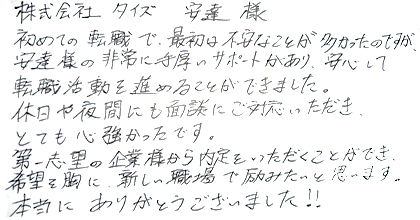 株式会社 タイズ 安達 様
初めての転職で、最初は不安なことが多かったのですが、
安達様の非常に手厚いサポートがあり、安心して
転職活動を進めることができました。
休日や夜間にも面談にご対応いただき、
とても心強かったです。
第一志望の企業様から内定をいただくことができ、
希望を胸に、新しい職場で励みたいと思います。
本当に ありがとうございました!!